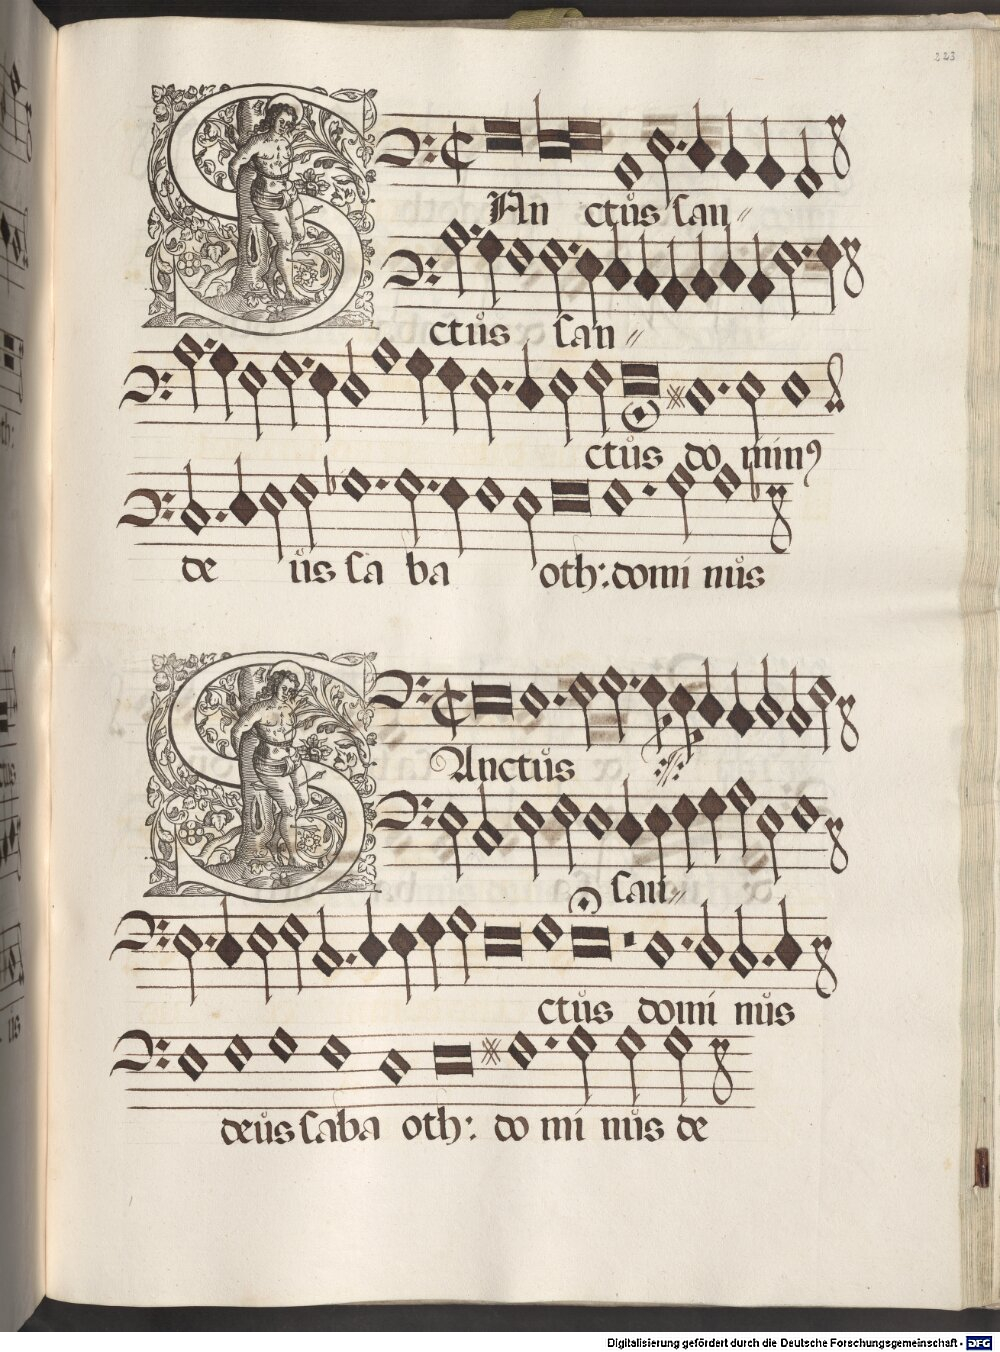 223
SAn ctus san〃
ctus san〃
ctus do min9
de us sa ba oth: domi nus
SAnctus
san〃
ctus domi nus
deus saba oth: do mi nus de
Digitalisierung gefördert durch die Deutsche Forschungsgemeinschaft - DFG